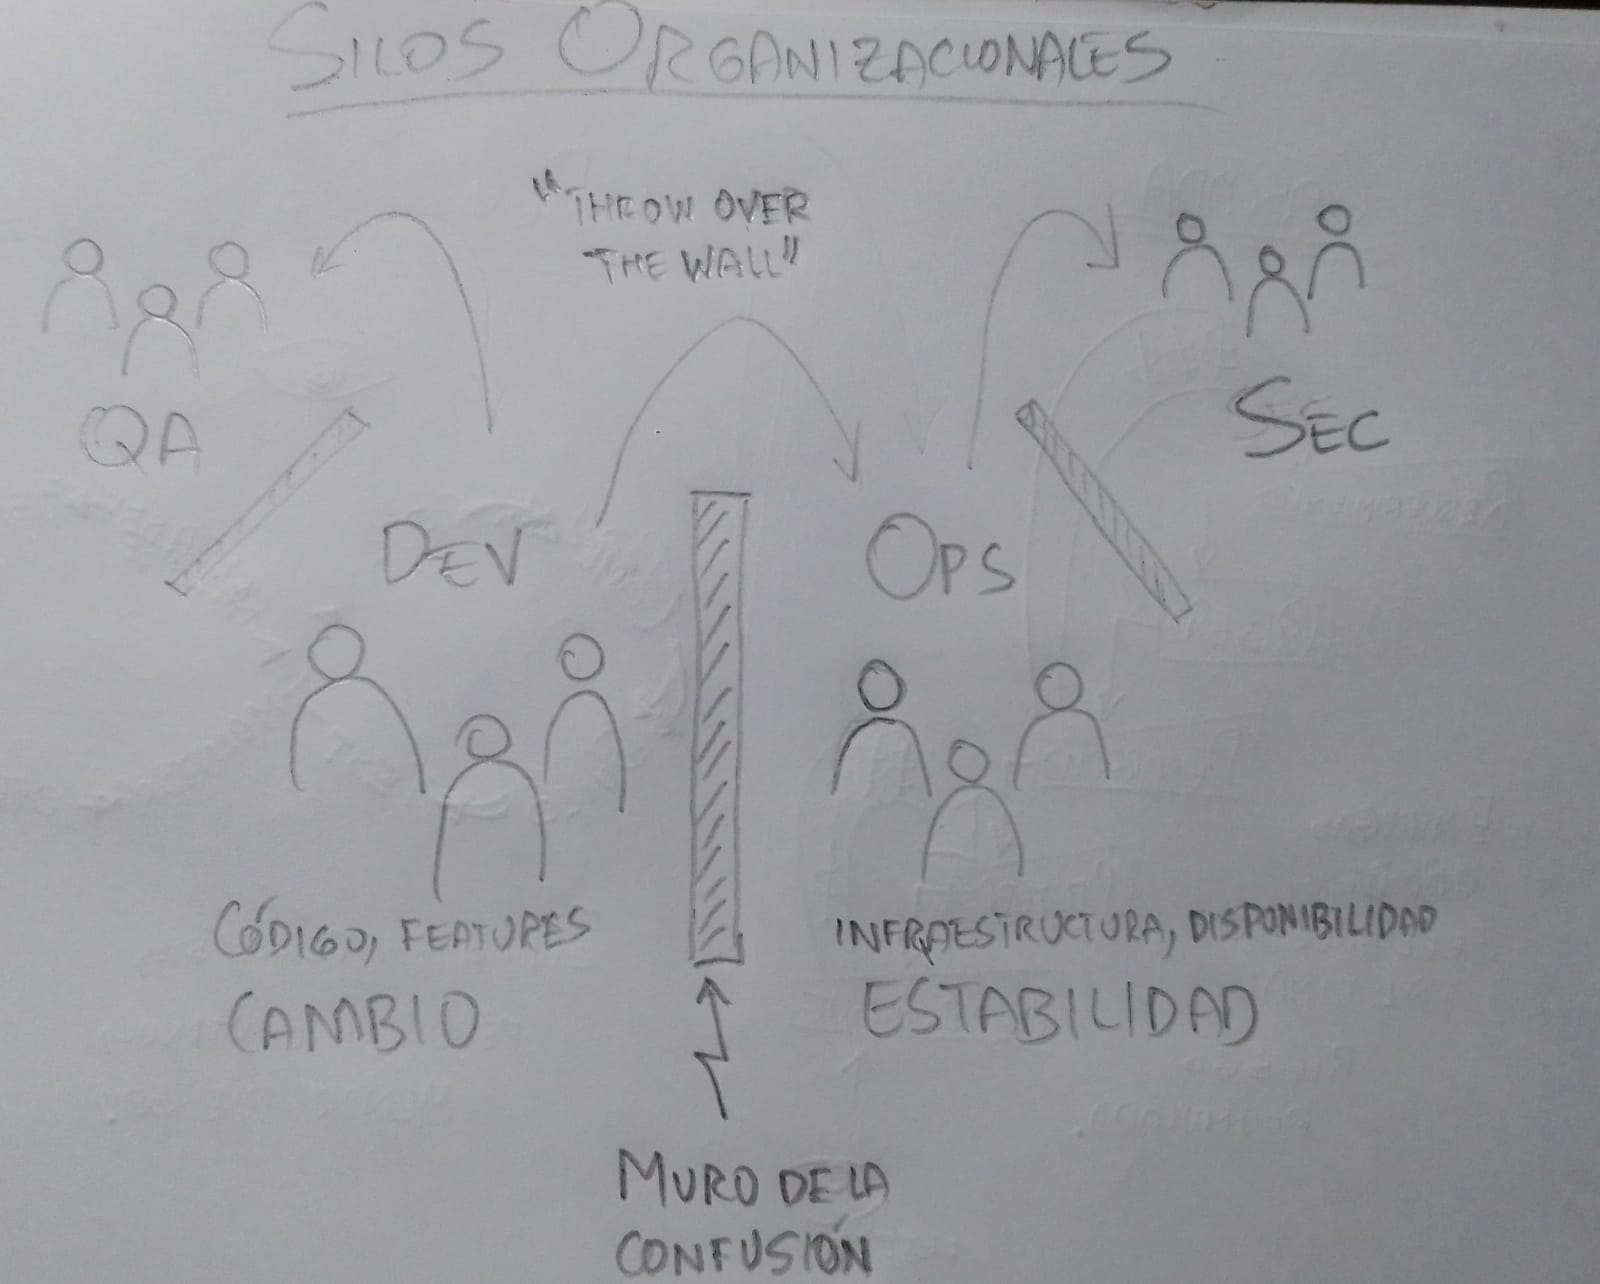 SILOS ORGANIZACIONALES
"THROW OVER
THE WALL"
QA
SEC
DEV
OPS
CÓDIGO, FEATURES
CAMBIO
INFRAESTRUCTURA, DISPONIBILIDAD
ESTABILIDAD
MURO DE LA
CONFUSIÓN